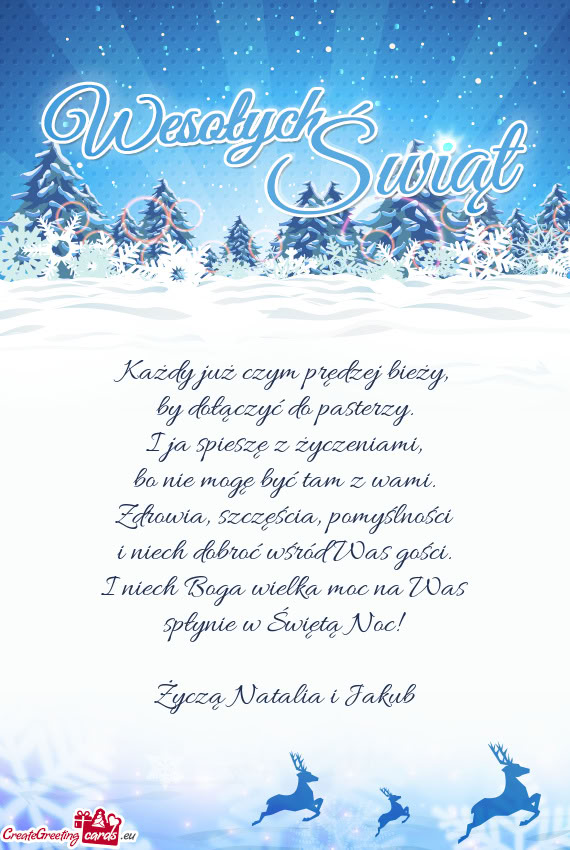 Wesołych
Świąt
Każdy już czym prędzej bieży,
by dołączyć do pasterzy.
I ja spieszę z życzeniami,
bo nie mogę być tam z wami.
Zdrowia, szczęścia, pomyślności
i niech dobroć wśród Was gości.
I niech Boga wielka moc na Was
spłynie w Świętą Noc!
Życzą Natalia i Jakub
CreateGreeting cards .eu